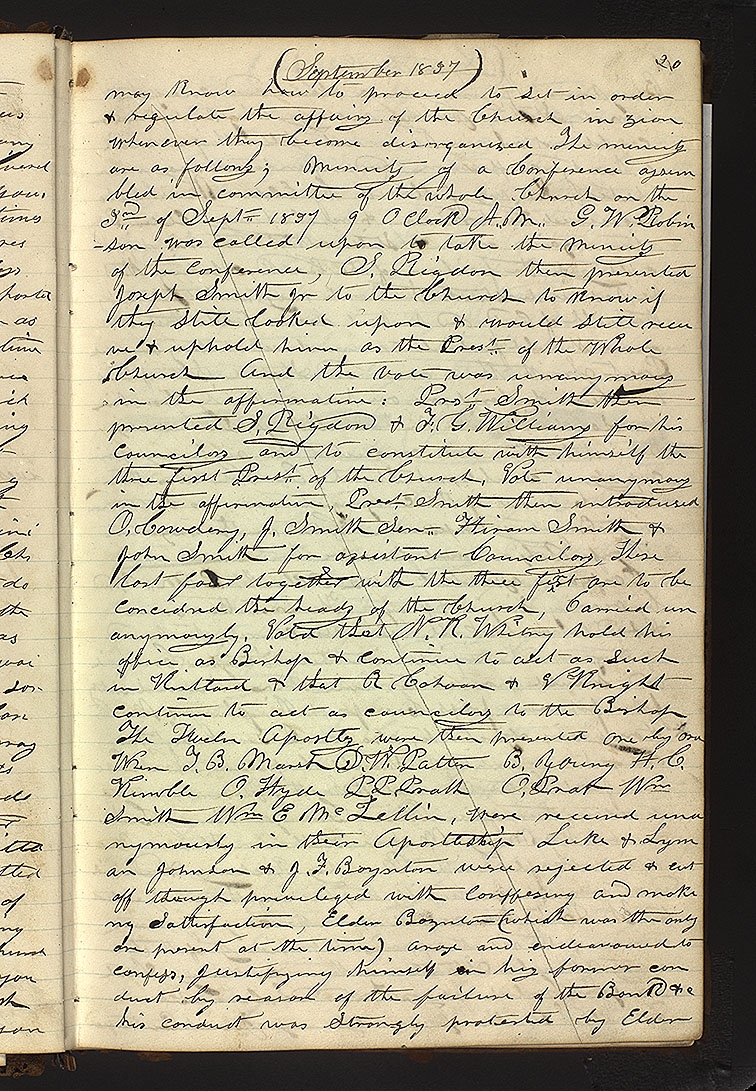 (September 1837)
20
may know how to proceed to set in order
& regulate the affairs of the Church in zion
whenever they become disorganized The minuits
are as follows; Minuits of a Conference assem
bled in committee of the whole Church on the
3rd of Sept 1837 9 O Clock A.M. G. W. Robin
-son was called upon to take the minuits
of the conference, S. Rigdon then presented
Joseph Smith Jr to the Church to know if
they still looked upon & would still recei
ve & uphold him as the Prest. of the Whole
Church And the vote was unanymous
in the affirmative: Prest. Smith then
presented S. Rigdon & F. G. Williams for his
councilors and to constitute with himself the
three first Prest. of the Church. Vote unanymous
in the affirmative, Prest Smith then introduced
O. Cowdery, J. Smith Sen. Hiram Smith &
John Smith for assistant Councilors, These
last four together with the three first are to be
concidred the heads of the Church, Carried un
anymously. Voted that N. K. Whitney hold his
office as Bishop & continue to act as such
in Kirtland & that R Cahoon & V Knight
continue to act as councilors to the Bishop
The Twelve Apostles were then presented one by one
When T. B. Marsh D. W. Patten B. Young H. C.
Kimble O. Hyde P. P. Pratt O. Prat Wm
Smith Wm E McLellin, were received una
nymously in their Apostleship Luke & Lym
an Johnson & J. F. Boynton were rejected & cut
off though privileged with conffesing and maki
ng Satisfaction, Elder Boynton (which was the only
one present at the time) arose and endeavoured to
confess, Justifying himself in his former con
duct by reason of the failure of the Bank &c
his conduct was strongly protested by Elder